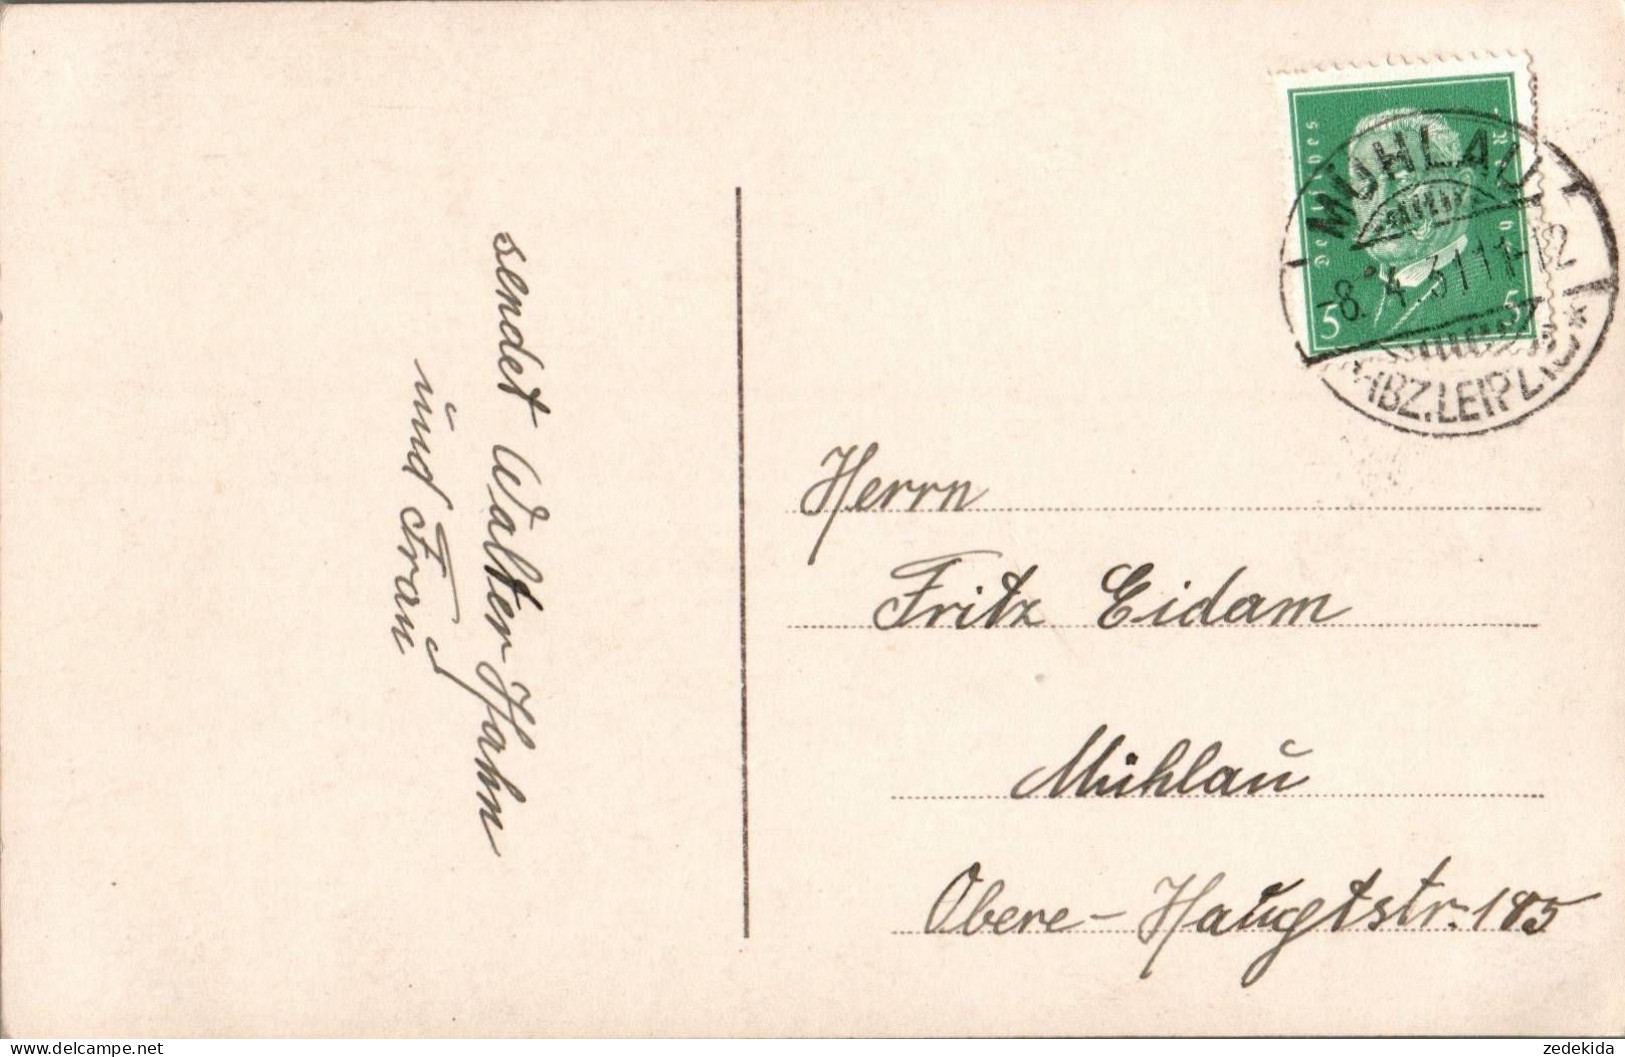 sendet Walter Hahn
und Frau
Deutsches
5 5
MÜHLAU
-8.4.31 11-12
(BZ. LEIPZIG)*
Herrn
Fritz Eidam
Mühlau
Obere-Hauptstr. 185
zedekida